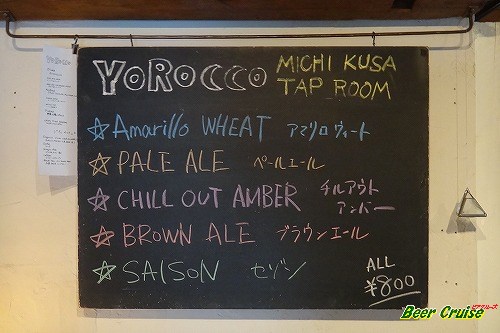 YOROCCO
MICHI KUSA
TAP ROOM
☆ Amarillo WHEAT アマリロ ウィート
☆ PALE ALE ペールエール
☆ CHILL OUT AMBER チルアウト
アンバー
☆ BROWN ALE ブラウンエール
☆ SAISON セゾン
ALL
¥800
ビアクルーズ
Beer Cruise